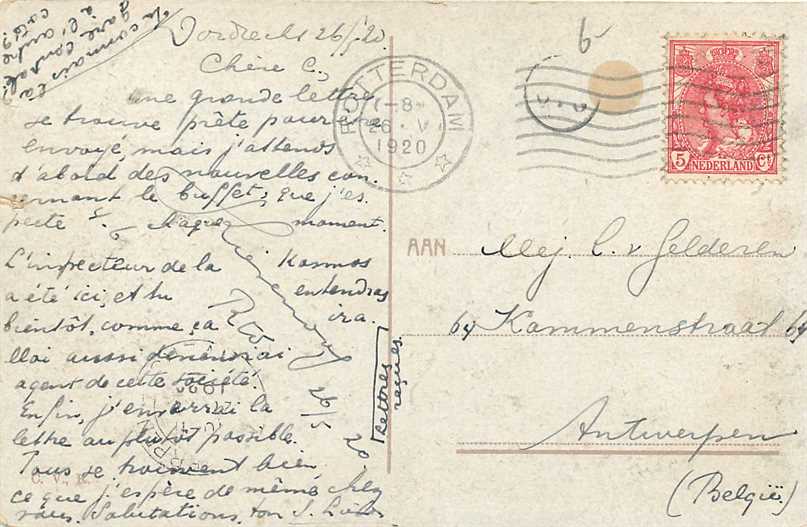 Tu connais la
gare centrale
à l'autre
coté?
Dordrecht 26/5 20.
Chère C.,
une grande lettre
se trouve prête pour être
envoyé, mais j'attends
d'abord des nouvelles con-
cernant le buffet, que j'es-
pecte à chaque moment.
L'inspecteur de la Kosmos
a été ici, et tu entendras
bientôt, comme ça ira.
Moi aussi deviendrai
agent de cette société.
Enfin, j'enverrai la
lettre au plutôt possible.
Tous se trouvent bien
ce que j'espère de même chez
vous. Salutations, ton S.
R'dam
26/5 20
lettres
reçues.
C. V., R.
ROTTERDAM
1-8
26 · V
1920
6
5 Ct
NEDERLAND
AAN Mej. C. v Gelderen
64 Kammenstraat 64
Antwerpen
(België)